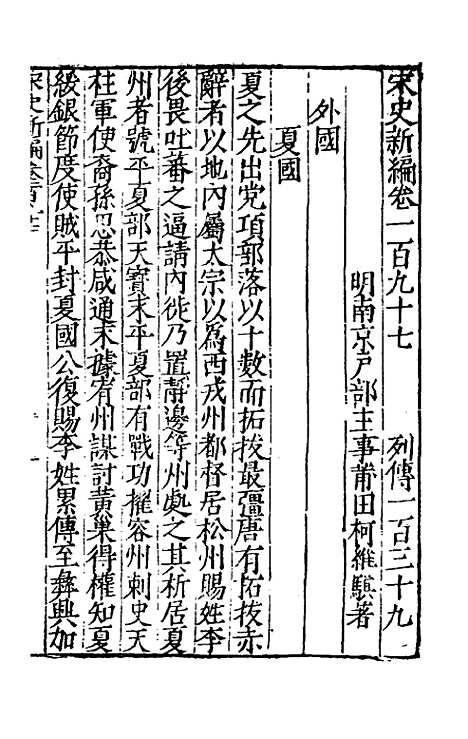 宋史新編卷一百九十七　列傳一百三十九
明南京戸部主事莆田柯維騏著
外國
夏國
夏之先出党項部落以十數而拓拔最彊唐有拓拔赤
辭者以地內屬太宗以為西戎州都督居松州賜姓李
後畏吐蕃之逼請內徙乃置靜邊等州處之其析居夏
州者號平夏部天寶末平夏部有戰功擢容州刺史天
柱軍使裔孫思恭咸通末據宥州謀討黃巢得權知夏
綏銀節度使賊平封夏國公復賜李姓累傳至彝興加
宋史新編卷